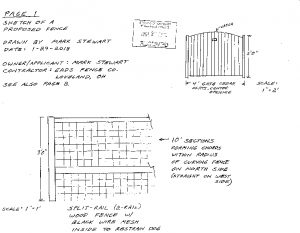 PAGE 1
SKETCH OF A
PROPOSED FENCE
DRAWN BY MARK STEWART
DATE: 1-29-2013
OWNER/APPLICANT: MARK STEWART
CONTRACTOR: EADS FENCE CO.
LOVELAND, OH
SEE ALSO PAGE 2.
ARCH
5'0"
4" GATE CEDAR
SCALE:
1"=2'
3'8"
10' SECTIONS
FORMING CHORDS
WITHIN RADIUS
OF CURVING FENCE
ON NORTH SIDE
(STRAIGHT ON WEST
SIDE)
SCALE: 1"=1'
SPLIT-RAIL (2-RAIL)
WOOD FENCE W/
BLACK WIRE MESH
INSIDE TO RESTRAIN DOG